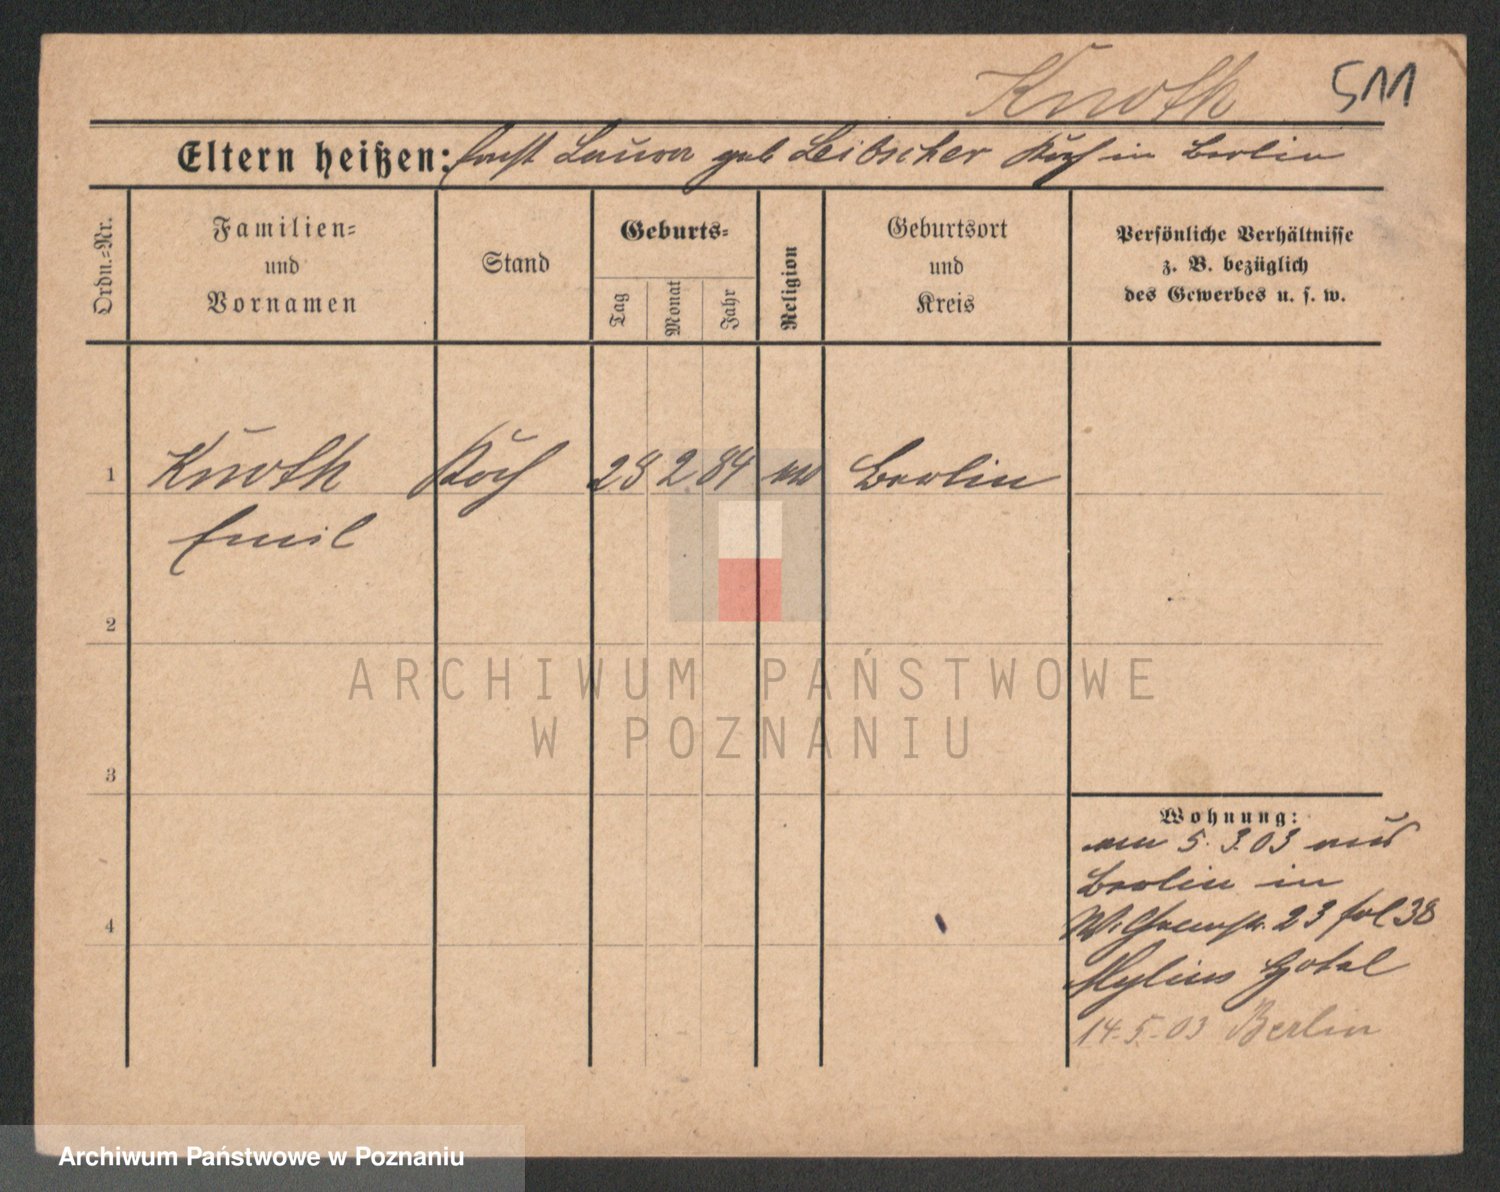 Knoth 511
Eltern heißen: Ernst Laura geb Leibscher Koch in Berlin
Ordn.=Nr.
Familien=
und
Vornamen
Stand
Geburts=
Tag
Monat
Jahr
Religion
Geburtsort
und
Kreis
Persönliche Verhältnisse
z. B. bezüglich
des Gewerbes u. s. w.
1 Knoth Koch 28 2 84 ev Berlin
Emil
2
3
4
Wohnung:
am 5. 3. 03 aus
Berlin in
Wilhelmstr. 23 fol 38
Mylius Hotel
14.-5.-03 Berlin
ARCHIWUM PAŃSTWOWE
W POZNANIU
Archiwum Państwowe w Poznaniu